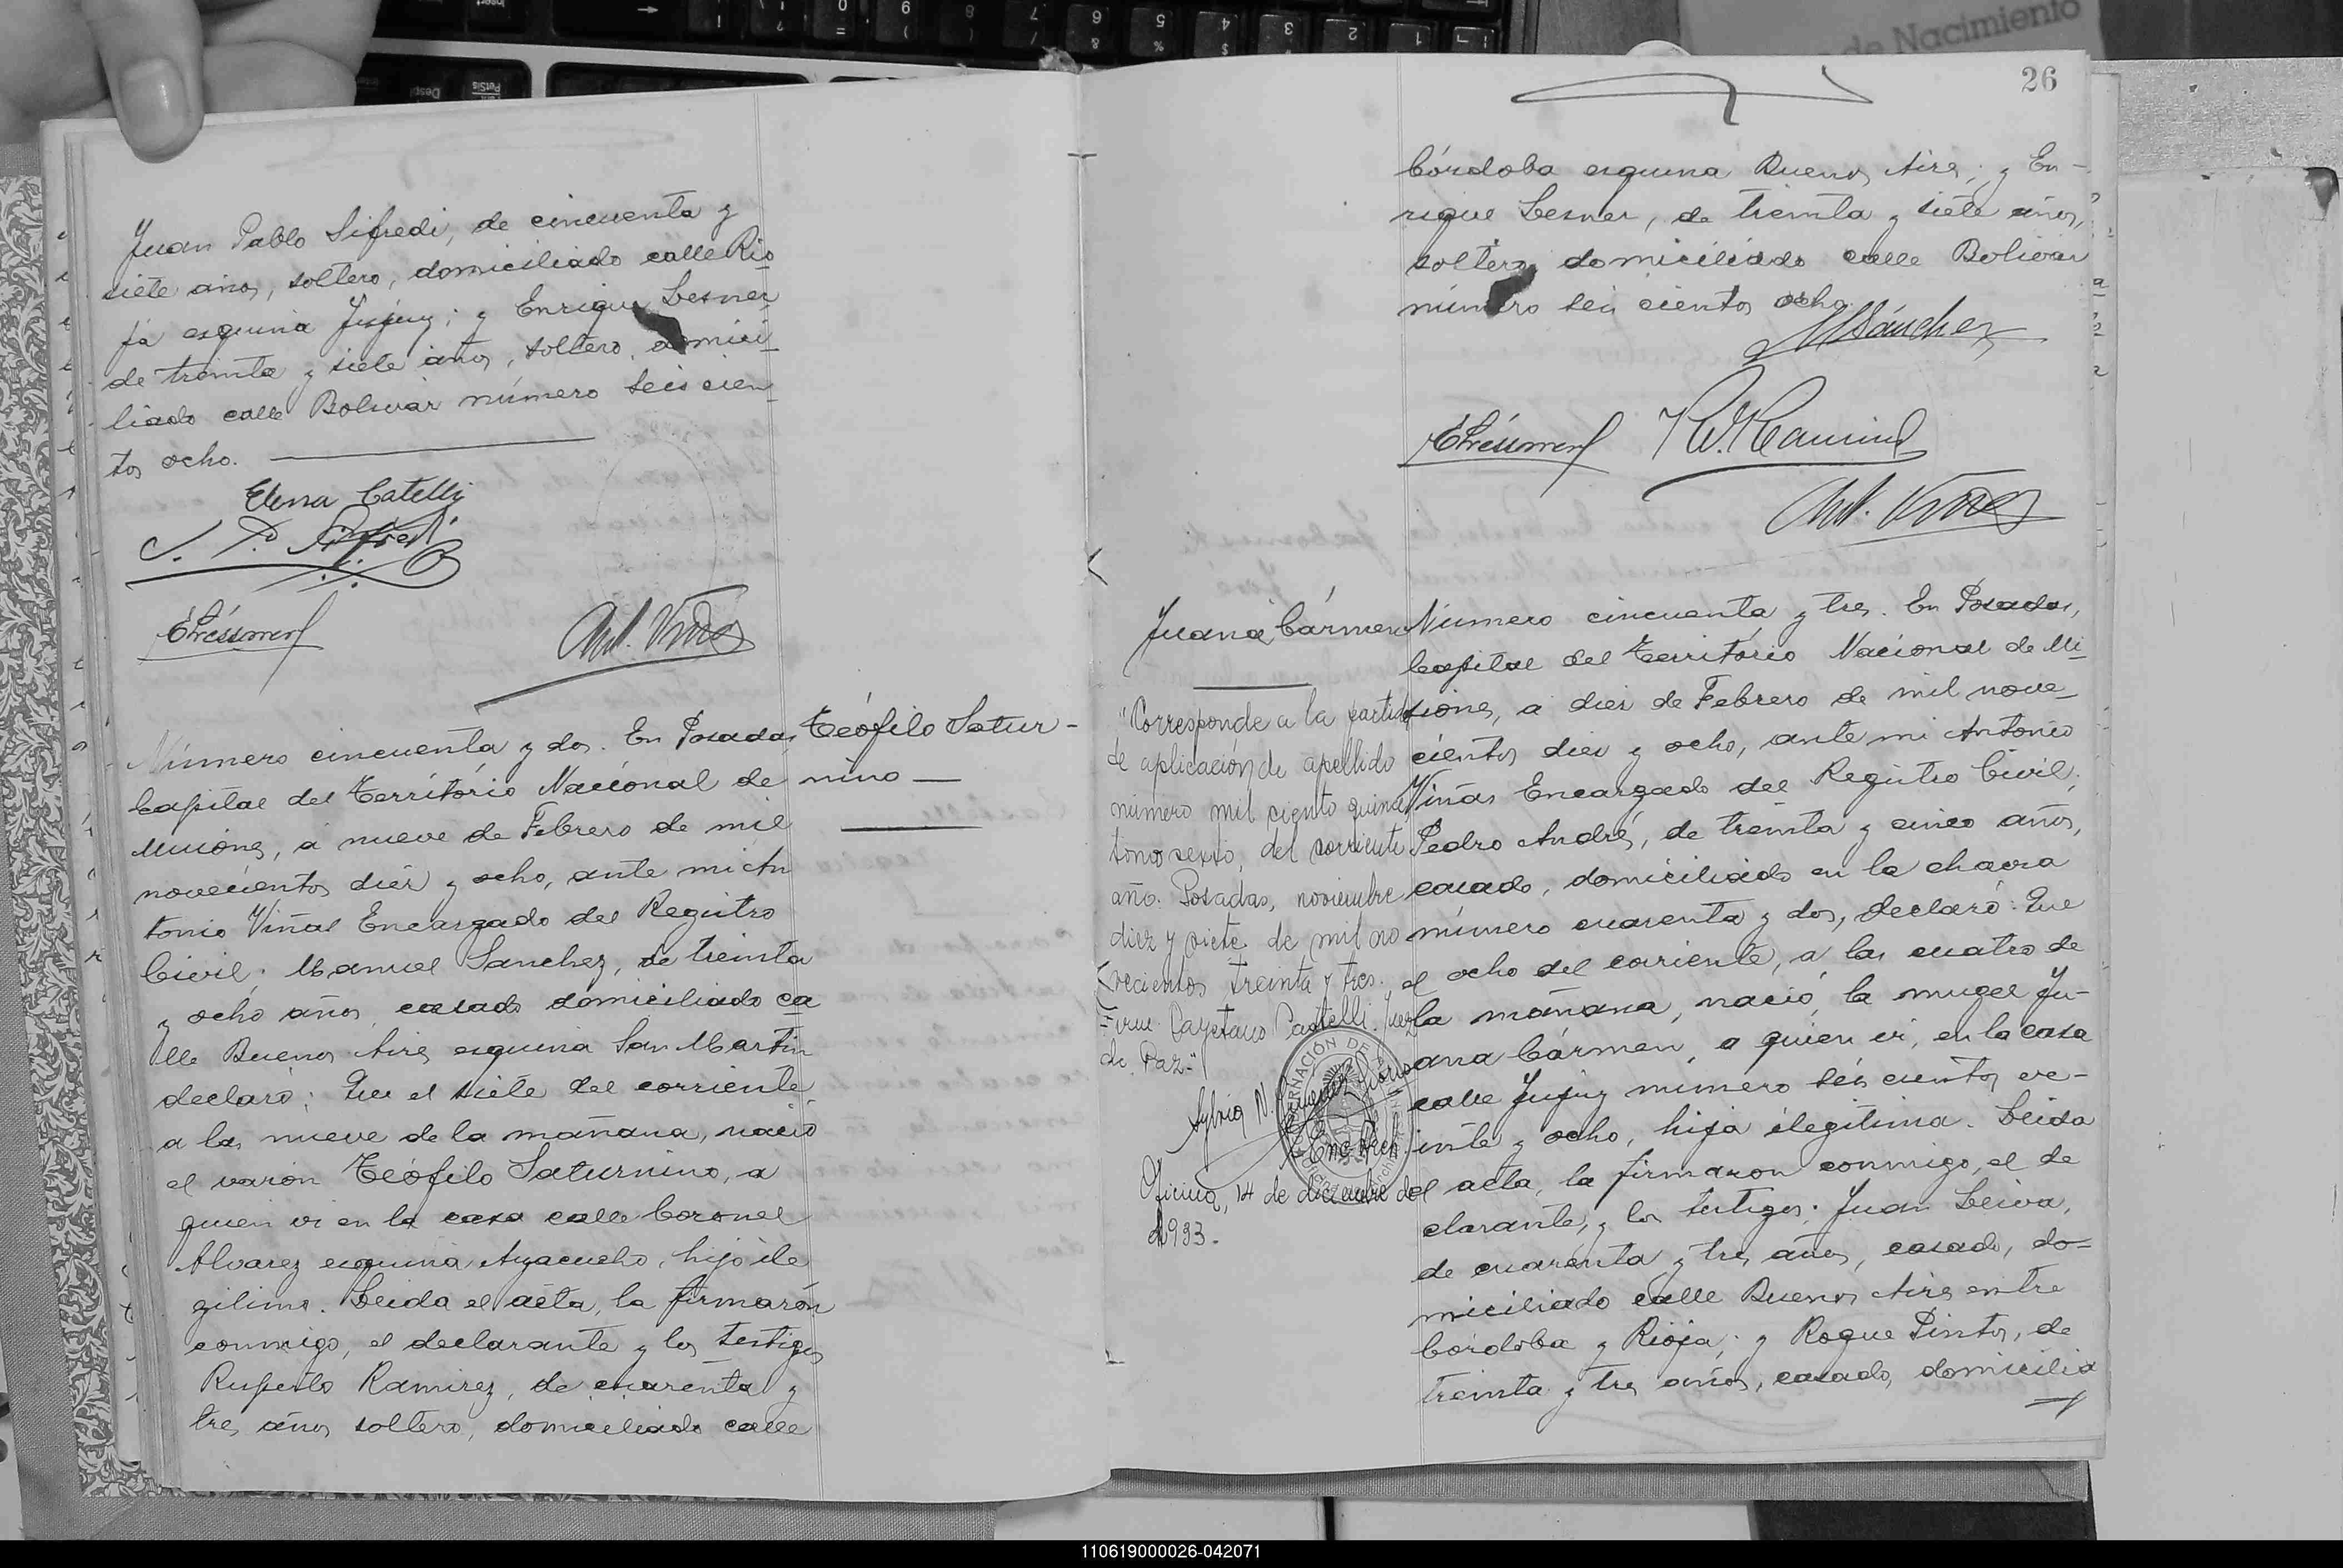 de Nacimiento
Juan Pablo Sifredi, de cincuenta y
siete años, soltero, domiciliado calle Rio
ja esquina Jujuy; y Enrique Lesner,
de treinta y siete años, soltero, domici
liado calle Bolivar número seis cien
tos ocho.
Elena Catelly
J. P. Sifredi
Número cincuenta y dos. En Posadas
Capital del Território Nacional de
Misiones, á nueve de Febrero de mil
novecientos diez y ocho, ante mi An
tonio Viñas Encargado del Registro
Civil; Manuel Sanchez, de treinta
y ocho años, casado domiciliado ca
lle Buenos Aires esquina San Martin
declaró: Que el siete del corriente
a las nueve de la mañana, nació
el varón Teófilo Saturnino, a
quien vi en la casa calle Coronel
Alvarez esquina Ayacucho, hijo ile
gitimo. Leida el acta, la firmarón
conmigo, el declarante y los testigos
Ruperto Ramirez, de cuarenta y
tres años soltero, domiciliado calle
Teófilo Satur-
nino
26
Córdoba esquina Buenos Aires; y En-
rique Lesner, de treinta y siete años,
soltero domiciliado calle Bolivar
número seis cientos ocho.
MSánchez
Juana Cármen
Número cincuenta y tres. En Posadas,
Capital del Território Nacional de Mi
siones, a diez de Febrero de mil nove
cientos diez y ocho, ante mi Antonio
Viñas Encargado del Registro Civil;
Pedro André, de treinta y cinco años,
casado, domiciliado en la chacra
número cuarenta y dos, declaró: Que
el ocho del corriente, a las cuatro de
la mañana, nació, la muger Ju-
ana Cármen, a quien vi, en la casa
calle Jujuy número seis cientos ve-
inte y ocho, hija ilegitima. Leida
el acta, la firmaron conmigo, el de
clarante, y los testigos; Juan Leiva,
de cuarenta y tres años, casado, do-
miciliado calle Buenos Aires entre
Córdoba y Rioja; y Roque Pintos, de
treinta y tres años, casado, domicilia
"Corresponde a la partida
de aplicación de apellido
número mil ciento quince
tomo sexto, del corriente
año. Posadas, noviembre
diez y siete de mil no
vecientos treinta y tres.
Cayetano Castelli. Juez
de Paz."
Sylvia N.
Enc. Rech
Oficina, 14 de diciembre de
1933.-
110619000026-042071